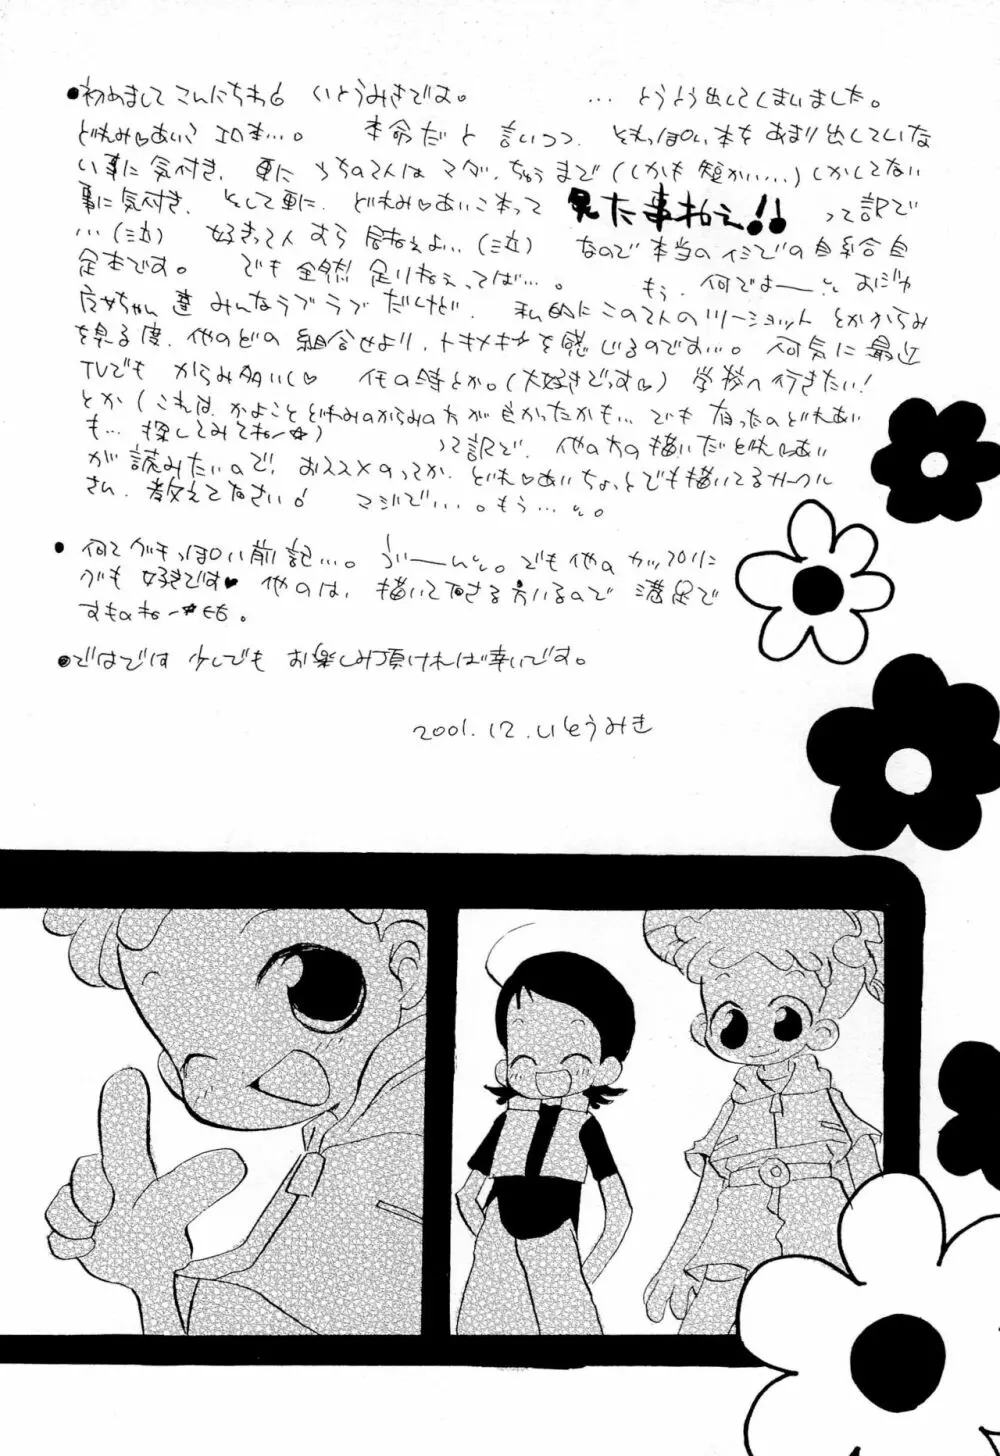 ●初めましてこんにちわ♪ いとうみきです。 … とうとう出してしまいました。
どれみ♡あいこエロ本…。 本命だと言いつつ、それっぽい本をあまり出していな
い事に気付き、更にうちの2人はマダ、ちゅうまで(しかも短かい…)しかしてない
事に気付き、そして更に、どれみ♡あいこ本って 見た事ねえ!! って訳で
…(泣) 好きって人すら居ねえよ…(泣) なので本当のイミでの自給自
足本です。 でも全然足りねえってば…。 もう、何でよーー。 おジャ
魔女ちゃん達みんなラブラブだけど、私的にこの2人のツーショットとかからみ
を見る度、他のどの組合せより、トキメキを感じるのです…。何気に最近
TVでもからみ多いし♡ 何の時とか。(大好きでっす♡) 学校へ行きたい!
とか(これは、かよことどれみのからみの方が良かったかも… でも有ったのどれあい
も… 探してみてねー☆) って訳で、他の方の描いたどれ♡あい
が読みたいので、おススメのってか、どれ♡あいちょっとでも描いてるサークル
さん、教えて下さい! マジで…。もう…。
● 何てグチっぽい前記…。うぃーん。でも他のカップリン
グも好きです♥ 他のは、描いて下さる方いるので満足で
すものねー
●ではでは少しでもお楽しみ頂ければ幸いです。
2001.12.いとうみき